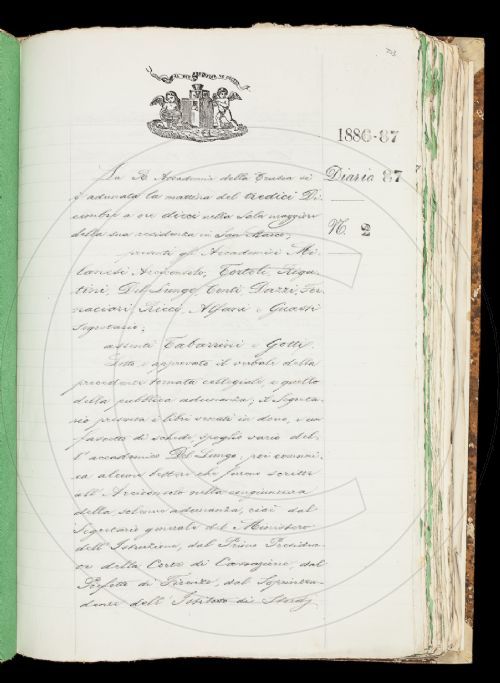 1886-87
Diario 87
N. 2
La R. Accademia della Crusca si
è adunata la mattina del tredici Di-
cembre a ore dieci nella Sala maggiore
della sua residenza in San Marco;
presenti gli Accademici Mi-
lanesi Arciconsolo, Tortoli, Rigu-
tini, Del Lungo, Conti, Dazzi, For-
naciari, Ricci, Alfani e Guasti
Segretario;
assenti Tabarrini e Gotti.
Letto e approvato il verbale della
precedente tornata collegiale, e quello
della pubblica adunanza; il Segreta-
rio presenta i libri venuti in dono, e un
fascetto di schede, spoglio vario del-
l'accademico Del Lungo; poi comuni-
ca alcune lettere che furono scritte
all'Arciconsolo nella congiuntura
della solenne adunanza, cioè dal
Segretario generale del Ministero
dell'Istruzione, dal Primo Presiden-
te della Corte di Cassazione, dal
Prefetto di Firenze, dal Soprinten-
dente dell'Istituto di Studj